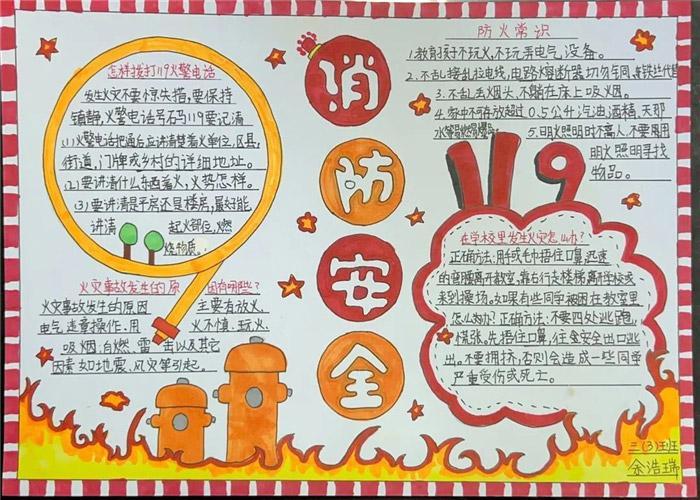 怎样拨打119火警电话
发生火灾不要惊失措,要保持
镇静,火警电话号码119要记清
(1)火警电话把通后应讲清楚着火单位,区县,
街道,门牌或乡村的详细地址。
(2)要讲清什么东西着火,火势怎样。
(3)要讲清是平房还是楼房,最好能
讲清 起火部位,燃
烧物质。
火灾事故发生的原 因有哪些?
火灾事故发生的原因 主要有放火,
电气违章操作,用 火不慎.玩火,
吸烟,自燃、雷 击以及其它
因素如地震、风灾等引起。
消
防
安
全
防火常识
1.教育孩子不玩火,不玩弄电气设备。
2.不乱接乱拉电线,电路熔断器切勿用铜、铁丝代替
3.不乱丢烟头,不躺在床上吸烟。
4.家中不可存放超过0.5公斤汽油,酒精,天那
水等易燃易爆品。
5.明火照明时不离人,不要用
明火照明寻找
物品。
119
在学校里发生火灾怎么办?
正确方法:用手或毛巾捂住口鼻,迅速
的弯腰离开教室,靠右行走楼梯,离开学校线
来到操场。如果有些同学被困在教室里
怎么办?正确方法:不要四处逃跑,
慌张。先捂住口鼻,往食安全出口逃
出,不要拥挤,否则会造成一些同学
严重受伤或死亡。
三(3)班
余浩瑞